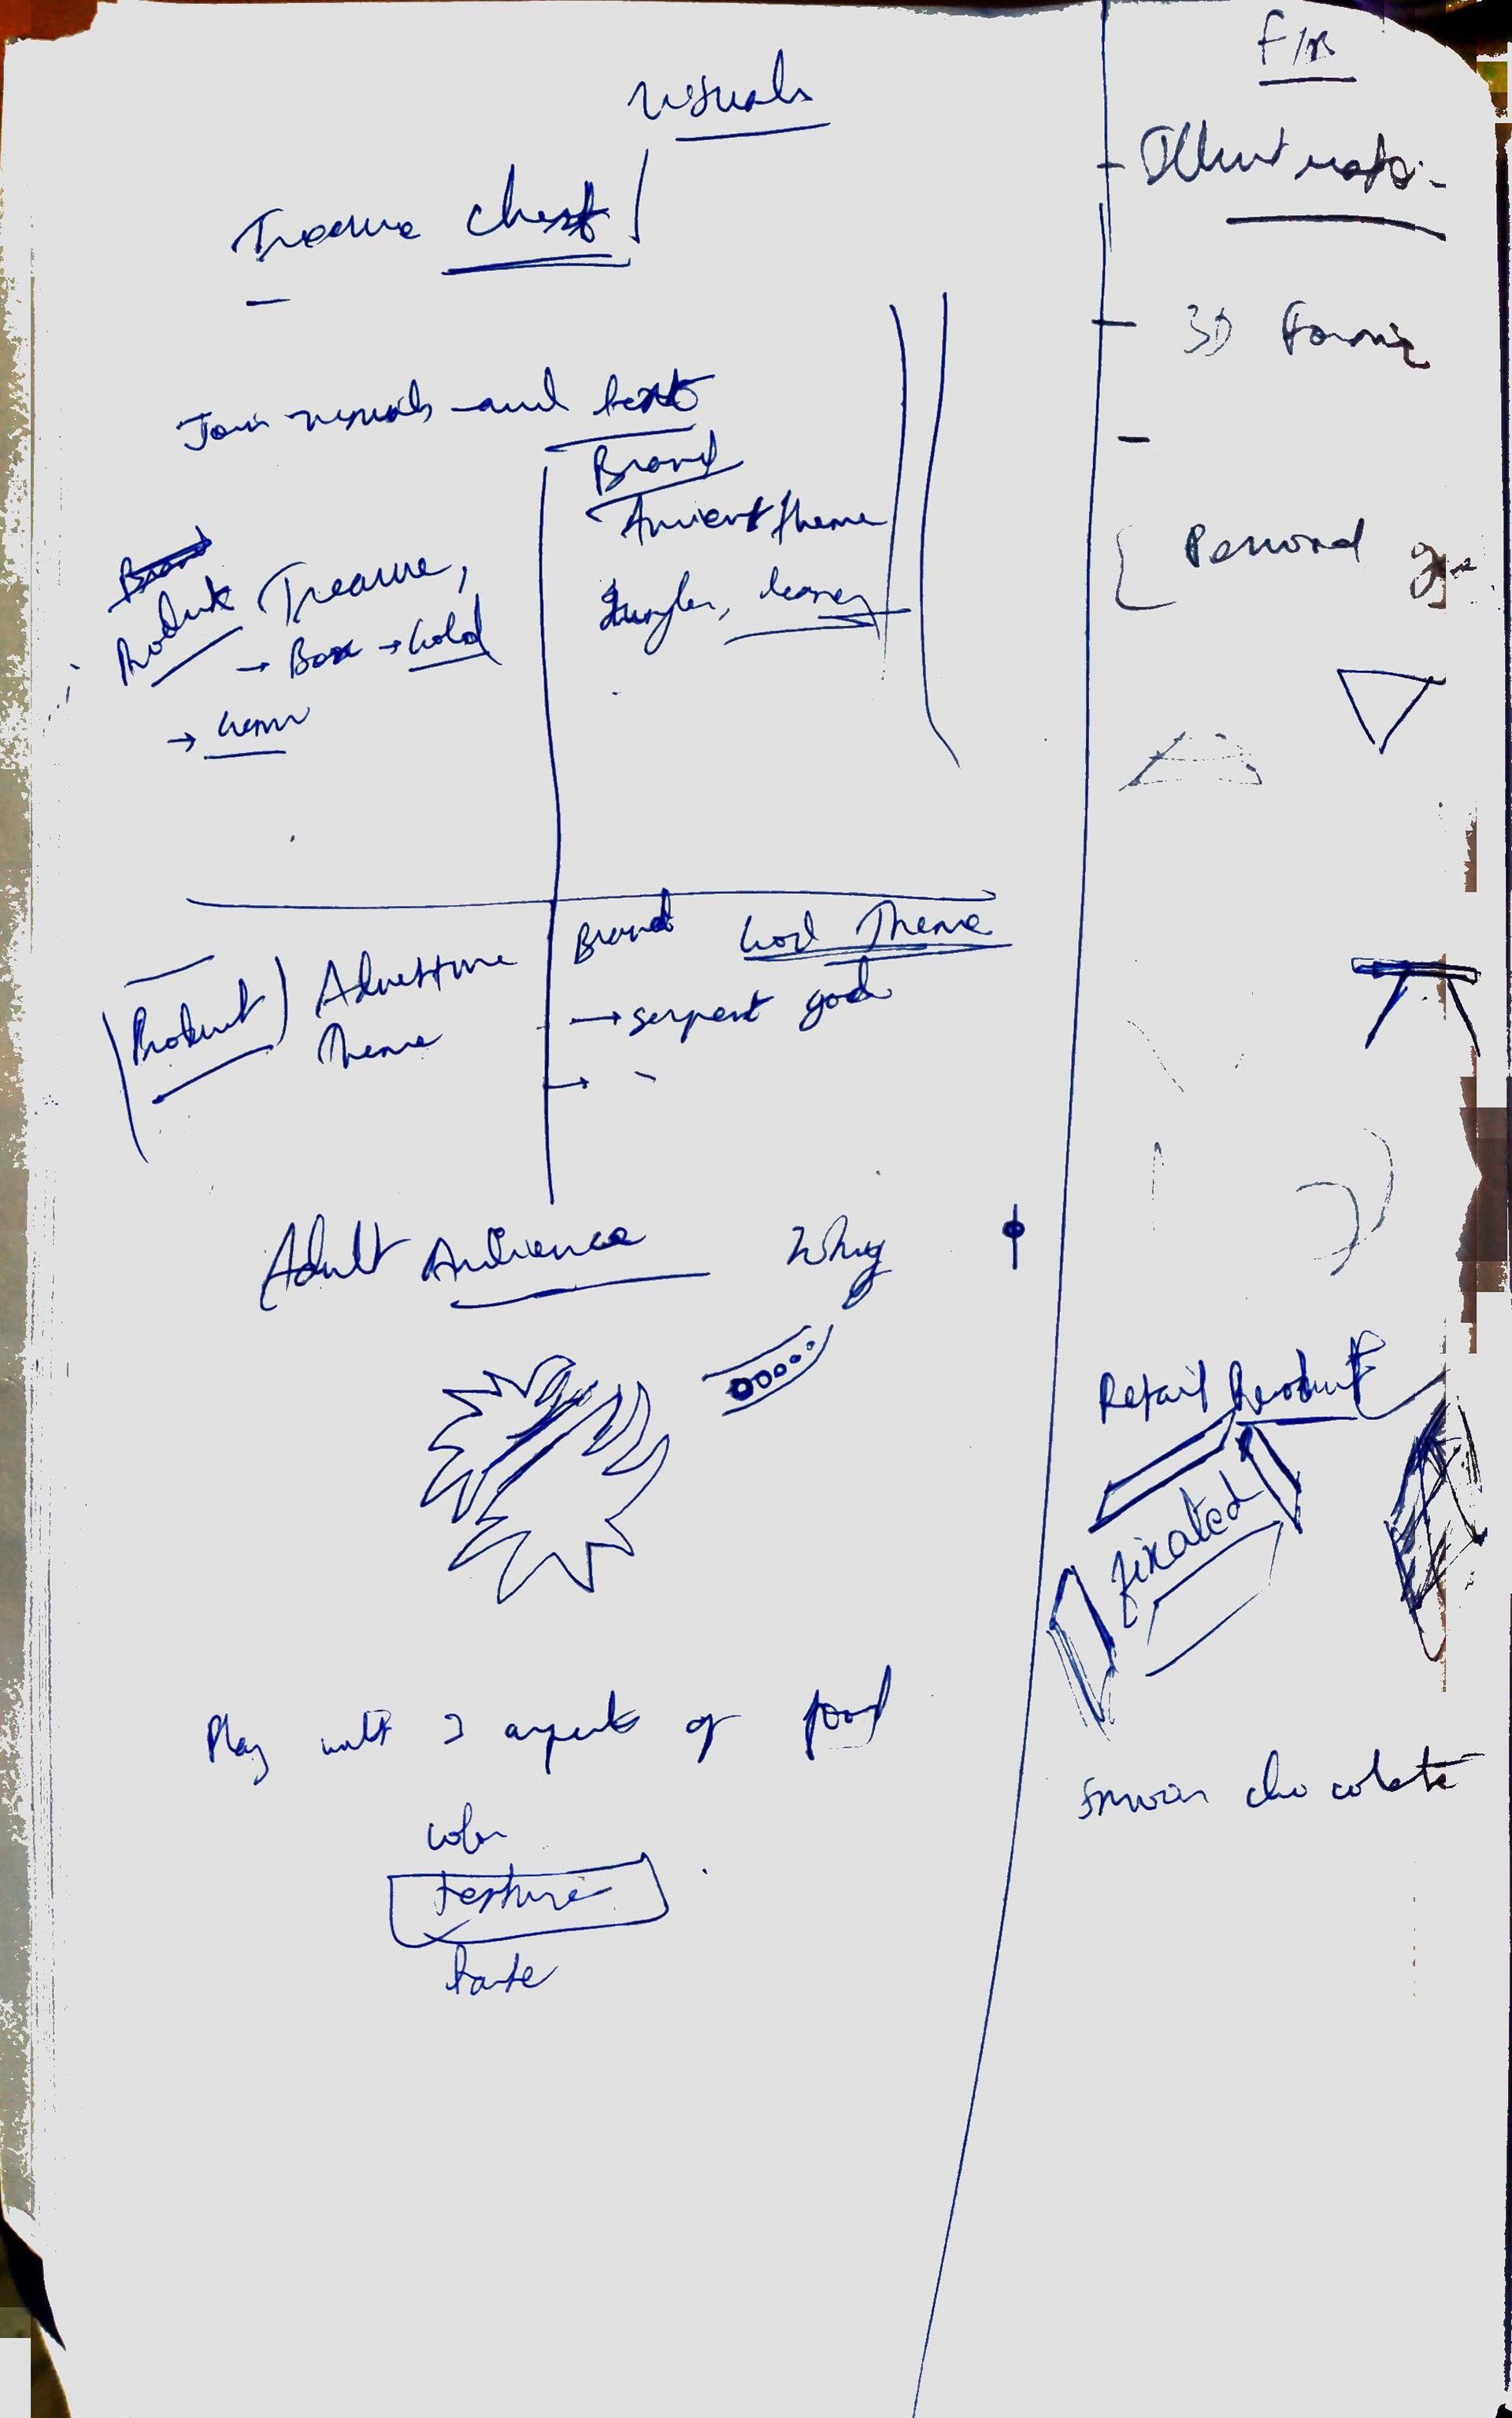 visuals
Treasure chest
Join visuals and text
Brand
Ancient theme
Jungles,
Product Treasure,
→ Box → Gold
→
Product) Adventure
Theme
Brand God Theme
→ serpent god
→
Adult Audience Why
Play with 3 aspects of food
color
texture
taste
F/B
- Illustration
- 3D
-
Personal
Retail Product
fixated
chocolate